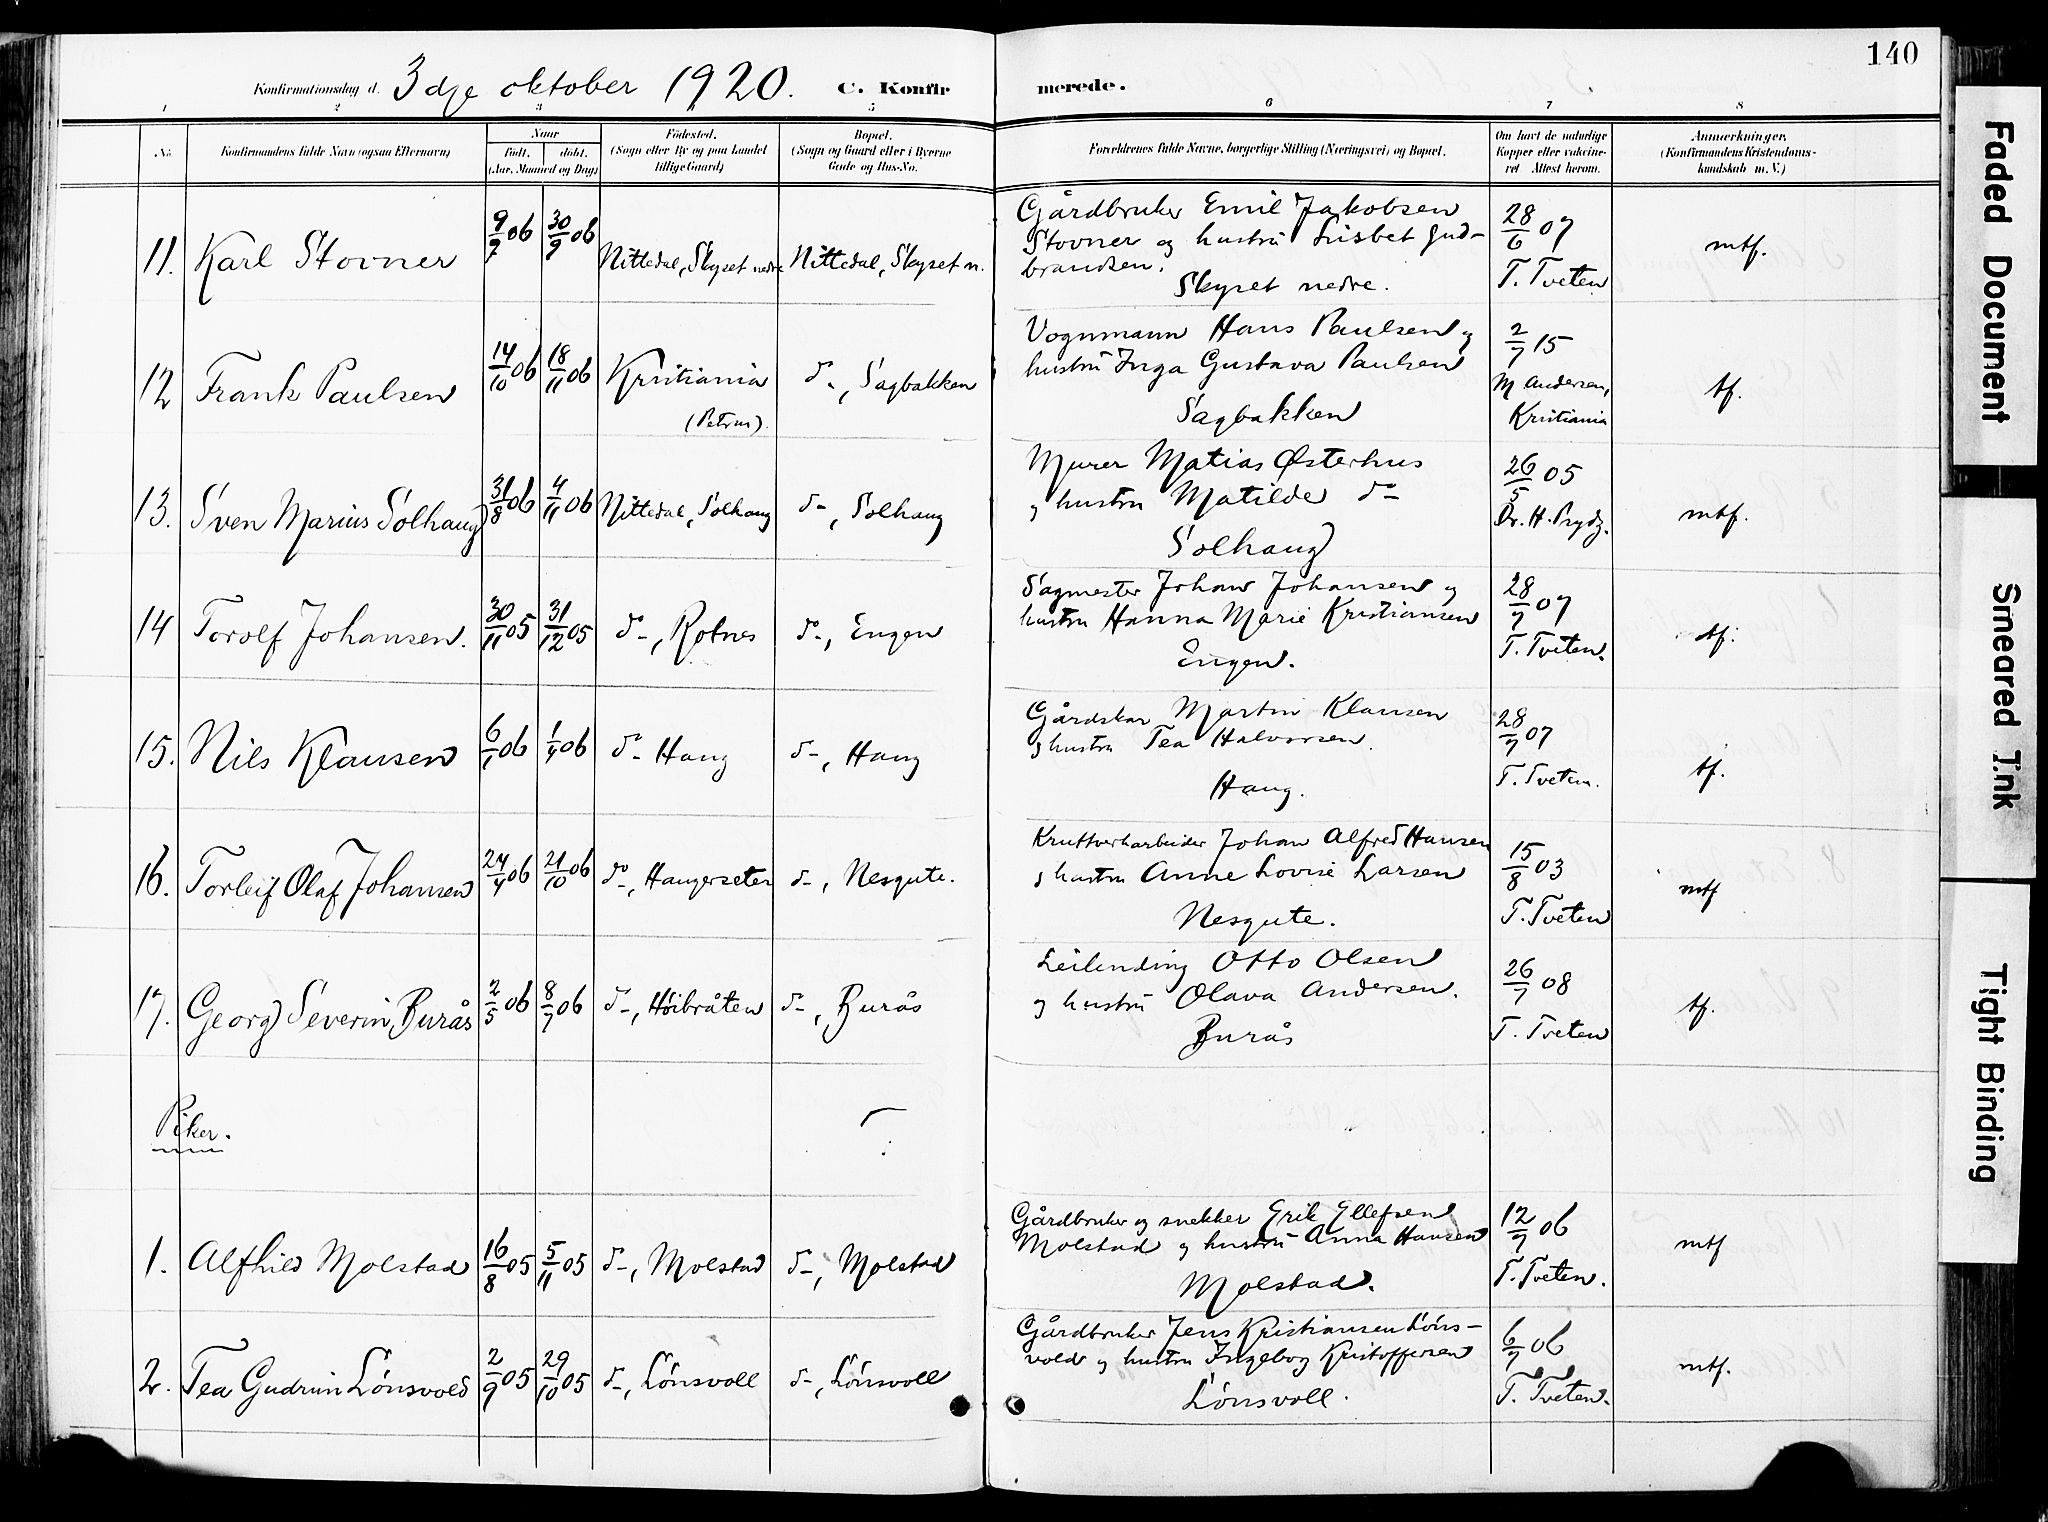 140
Konfirmationsdag d. 3dje oktober 1920. C. Konfirmerede.
1 2 3 4 5 6 7 8
No. Konfirmandens fulde Navn (ogsaa Efternavn) Naar født. døbt. (Aar, Maaned og Dag) Fødested. (Sogn eller By og paa Landet tillige Gaard) Bopæl. (Sogn og Gaard eller i Byerne Gade og Hus-No. Forældrenes fulde Navne, borgerlige Stilling (Næringsvei) og Bopæl. Om havt de naturlige Kopper eller vaccineret Attest herom. Anmærkninger. (Konfirmandens Kristendomskundskab m. V.)
11. Karl Stovner 9/7 06 30/9 06 Nittedal, Skyset nedre Nittedal, Skyset n. Gårdbruker Emil Jakobsen
Stovner og hustru Lisbet Gud-
brandsen.
Skyset nedre. 28/6 07 T. Tveten mtf.
12 Frank Paulsen 14/10 06 18/11 06 Kristiania (Petrus). do-, Sagbakken Vognmann Hans Paulsen og
hustru Inga Gustava Paulsen
Sagbakken 2/7 15 M Andersen, Kristiania tf.
13. Sven Marius Solhaug 31/8 06 4/11 06 Nittedal, Solhaug do-, Solhaug Murer Matias Østerhus
og hustru Matilde do-
Solhaug 26/5 05 Dr. H. Prydz. mtf.
14 Torolf Johansen. 30/11 05 31/12 05 do-, Rotnes do-, Engen Sagmester Johan Johansen og
hustru Hanna Marie Kristiansen
Engen. 28/7 07 T. Tveten. tf.
15. Nils Klausen 6/1 06 1/4 06 do- Haug do-, Haug Gårdskar Martin Klausen
og hustru Tea Halvorsen.
Haug. 28/7 07 T. Tveten. tf.
16. Torleif Olaf Johansen 24/4 06 21/10 06 do-, Haugerseter do-, Nesgute. Kruttverkarbeider Johan Alfred Hansen
og hustru Anne Lovise Larsen
Nesgute. 15/8 03 T. Tveten mtf
17. Georg Severin Burås 2/5 06 8/7 06 do-, Høibråten do-, Burås Leilending Otto Olsen
og hustru Olava Andersen.
Burås 26/7 08 T. Tveten tf.
Piker.
1. Alfhild Molstad 16/8 05 5/11 05 do-, Molstad do-, Molstad Gårdbruker og snekker Erik Ellefsen
Molstad og hustru Anna Hansen
Molstad. 12/7 06 T. Tveten. mtf
2. Tea Gudrun Lønsvold 2/9 05 29/10 05 do-, Lønsvoll do-, Lønsvoll Gårdbruker Jens Kristiansen Løns-
vold og hustru Ingeborg Kristoffersen
Lønsvoll. 6/7 06 T. Tveten. mtf.
Faded Document
Smeared Ink
Tight Binding